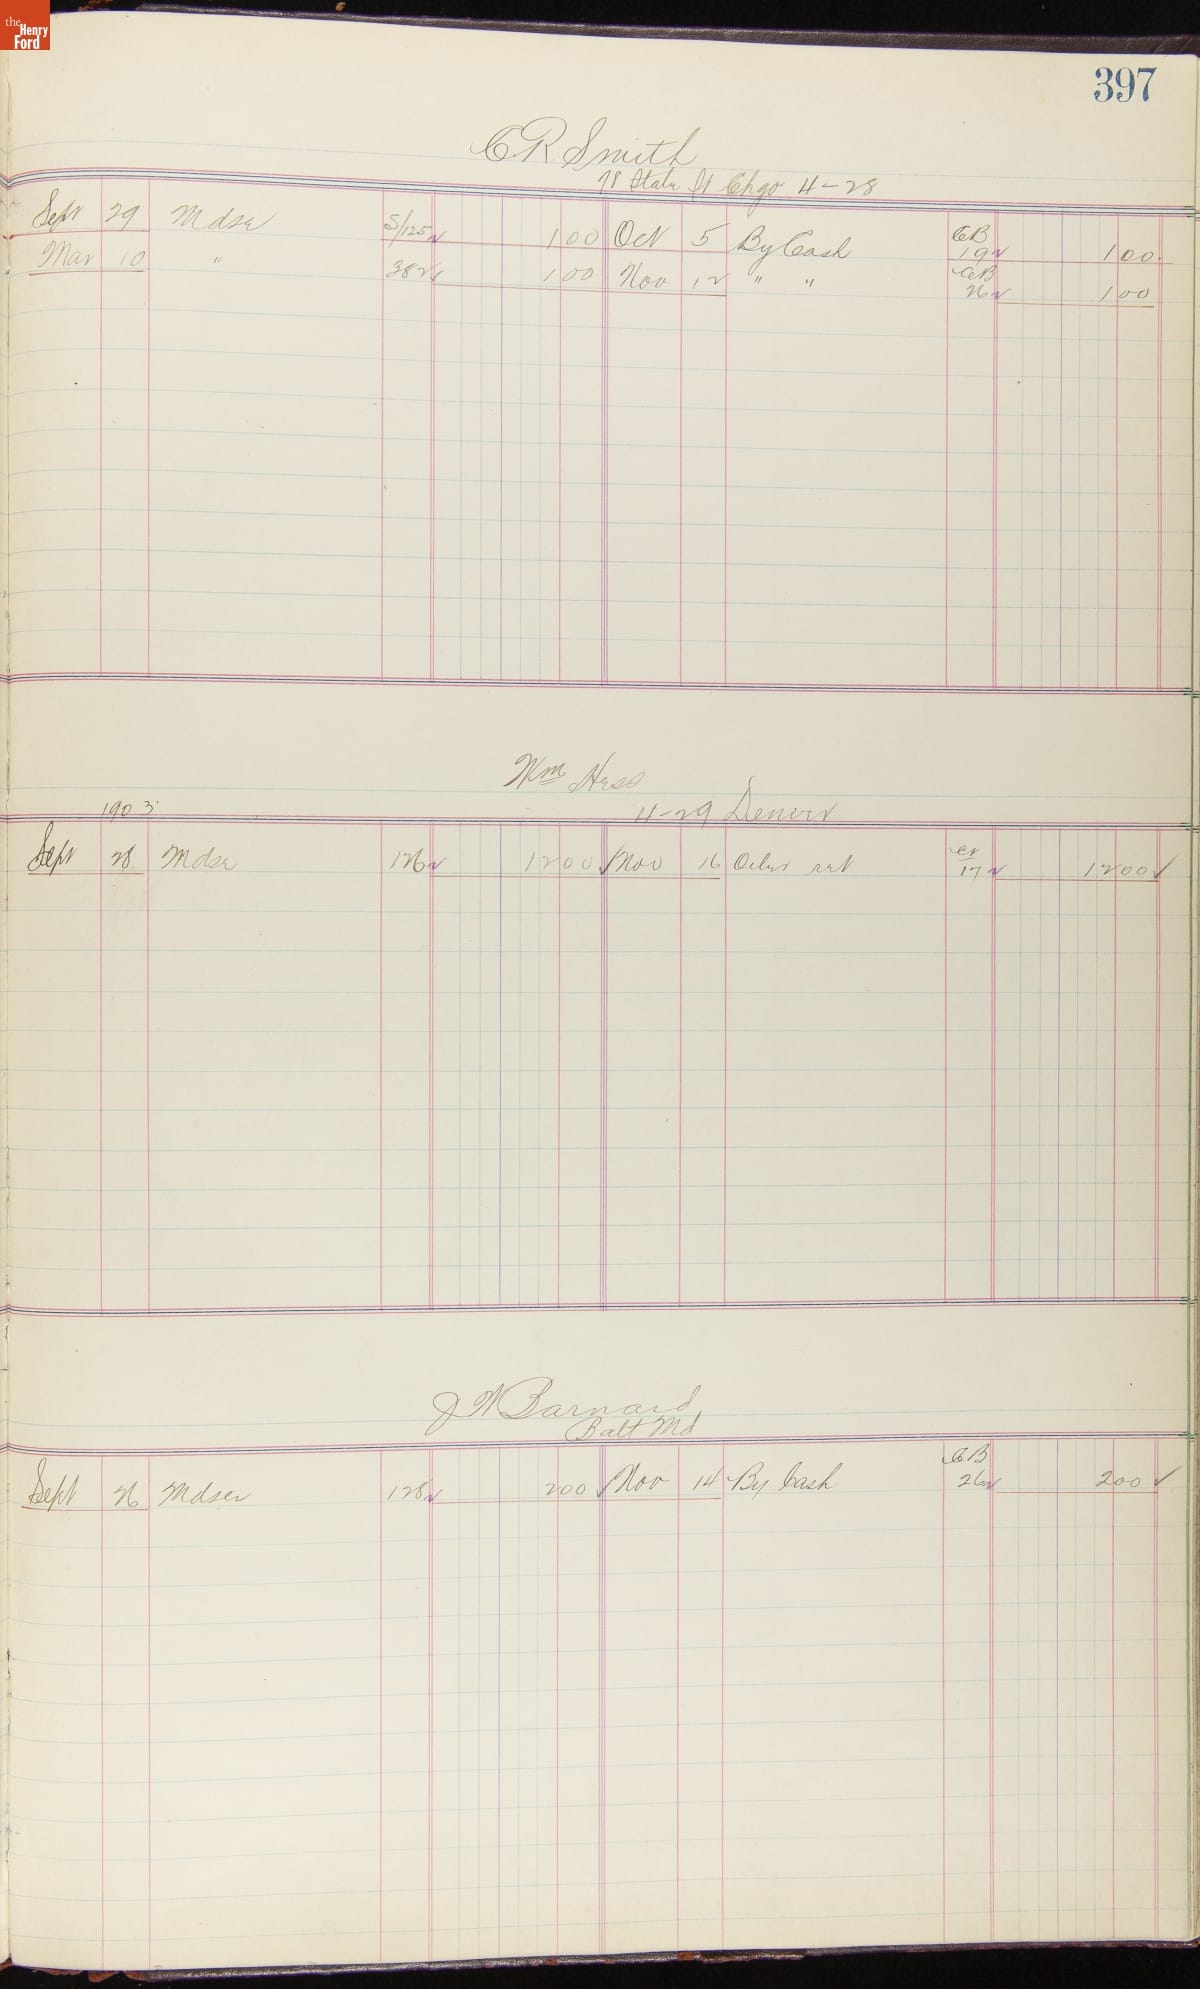 the
Henry
Ford
397
C R Smith
78 State St Chgo 4-28
Sept 29 Mdse S/125 1 00 Oct 5 By Cash CB 19 1 00
Mar 10 " 382 1 00 Nov 12 " " CB 26 1 00
Wm Hess
1903 4-29 Denver
Sept 28 Mdse 126 12 00 Nov 16 Oiler ret Cr 17 12 00
J W Barnard
Balt Md
Sept 26 Mdse 128 2 00 Nov 14 By Cash CB 26 2 00